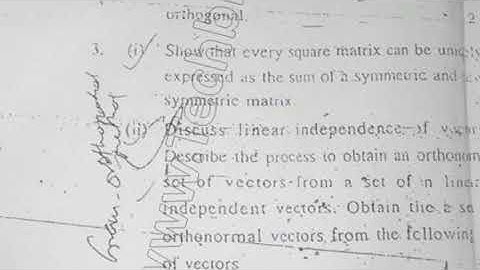 orthogonal. 2
3. (i) Show that every square matrix can be uniquely
expressed as the sum of a symmetric and
symmetric matrix
(ii) Discuss linear independence of
Describe the process to obtain an orthonorm
set of vectors from a set of n linear
independent vectors. Obtain the
orthonormal vectors from the following
of vectors
Gram-Orthogonal
method
www.Techn